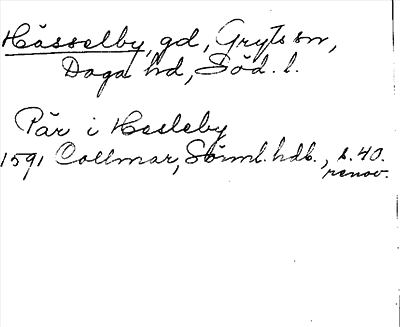 Hässelby, gd, Gryts sn,
Daga hd, Söd. l.
Pär i Hesleby
1591 Collmar, Sörml. hdb., s. 40.
renov.